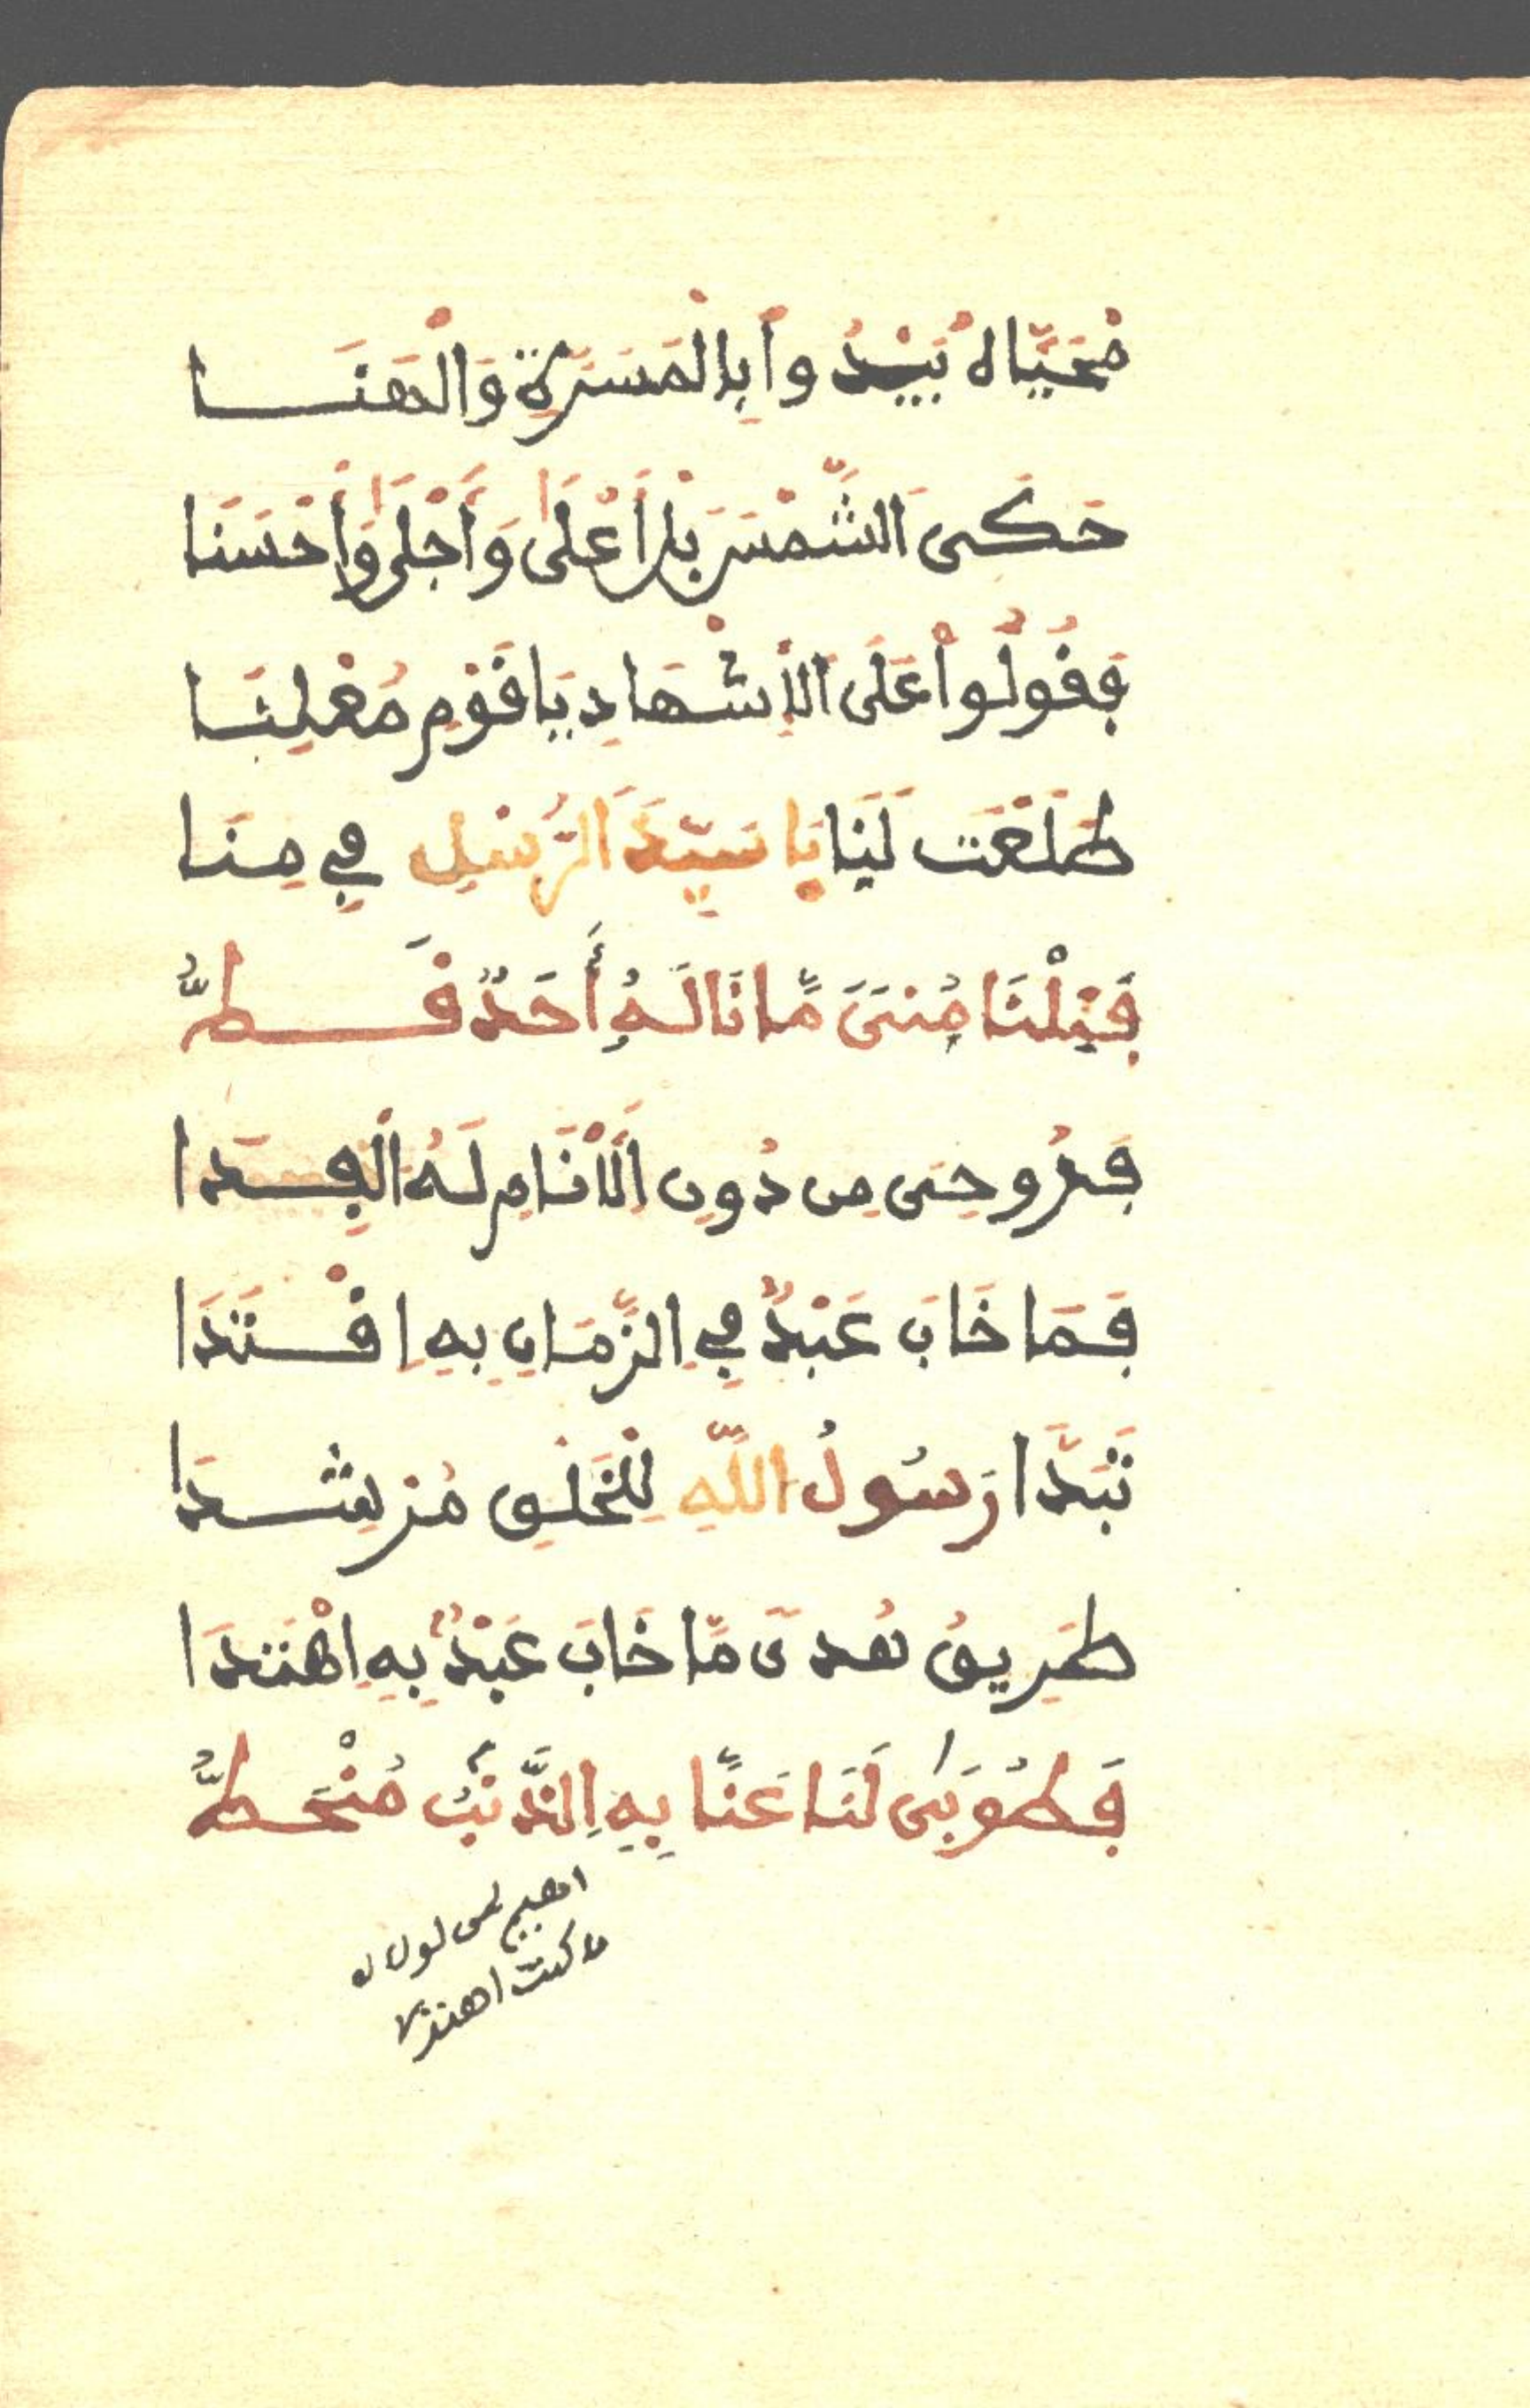 مُحَيَّاهُ يَبْدُواْ بِالْمَسَرَّةِ وَالْهَنَا
حَكَى الشَّمْسَ بَلْ أَعْلَى وَأَجْلَى وَأَحْسَنَا
فَقُولُواْ عَلَى الْأَشْهَادِ يَا قَوْمِ مُعْلِنَا
طَلَعْتَ لَنَا يَا سَيِّدَ الرُّسْلِ فِي مِنَا
فَنِلْنَا مُنىً مَّا نَالَهُ أَحَدٌ قَطُّ
فَرُوحِى مِن دُونِ الْأَنَامِ لَهُ الْفِدَا
فَمَا خَابَ عَبْدٌ فِي الزَّمَانِ بِهِ اِقْتَدَا
تَبَدَّا رَسُولُ اللَّهِ لِلْخَلْقِ مُرْشِدَا
طَرِيقُ هُدىً مَّا خَابَ عَبْدٌ بِهِ اِهْتَدَا
فَطُوبَى لَنَا عَنَّا بِهِ الذَّنْبُ مُنْحَطُّ